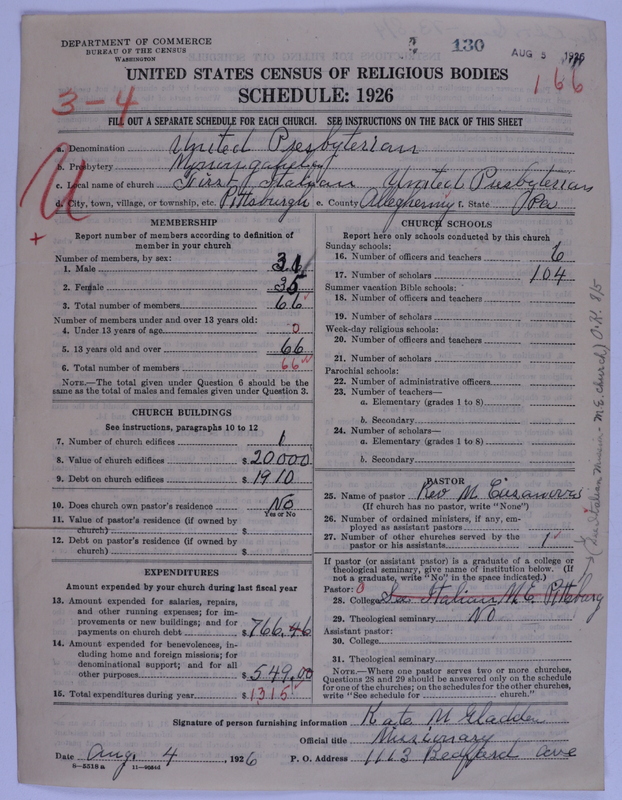 DEPARTMENT OF COMMERCE
BUREAU OF THE CENSUS
WASHINGTON
130
AUG 5 1926
166
UNITED STATES CENSUS OF RELIGIOUS BODIES
SCHEDULE: 1926
3-4
FILL OUT A SEPARATE SCHEDULE FOR EACH CHURCH. SEE INSTRUCTIONS ON THE BACK OF THIS SHEET
a. Denomination United Presbyterian
b. Presbytery Monongahela
c. Local name of church First Italian United Presbyterian
d. City, town, village, or township, etc. Pittsburgh e. County Allegheny f. State Pa
MEMBERSHIP
Report number of members according to definition of
member in your church
Number of members, by sex:
1. Male 31
2. Female 35
3. Total number of members 66
Number of members under and over 13 years old:
4. Under 13 years of age 0
5. 13 years old and over 66
6. Total number of members 66
NOTE.—The total given under Question 6 should be the
same as the total of males and females given under Question 3.
CHURCH BUILDINGS
See instructions, paragraphs 10 to 12
7. Number of church edifices 1
8. Value of church edifices $ 20000
9. Debt on church edifices $ 1910
10. Does church own pastor's residence No
Yes or No
11. Value of pastor's residence (if owned by
church) $
12. Debt on pastor's residence (if owned by
church) $
EXPENDITURES
Amount expended by your church during last fiscal year
13. Amount expended for salaries, repairs,
and other running expenses; for im-
provements or new buildings; and for
payments on church debt $ 766.46
14. Amount expended for benevolences, in-
cluding home and foreign missions; for
denominational support; and for all
other purposes $ 549.00
15. Total expenditures during year $ 1315
CHURCH SCHOOLS
Report here only schools conducted by this church
Sunday schools:
16. Number of officers and teachers 6
17. Number of scholars 104
Summer vacation Bible schools:
18. Number of officers and teachers
19. Number of scholars
Week-day religious schools:
20. Number of officers and teachers
21. Number of scholars
Parochial schools:
22. Number of administrative officers
23. Number of teachers—
a. Elementary (grades 1 to 8)
b. Secondary
24. Number of scholars—
a. Elementary (grades 1 to 8)
b. Secondary
PASTOR
25. Name of pastor Rev M.
(If church has no pastor, write "None")
26. Number of ordained ministers, if any, em-
ployed as assistant pastors
27. Number of other churches served by the
pastor or his assistants 1
If pastor (or assistant pastor) is a graduate of a college or
theological seminary, give name of institution below. (If
not a graduate, write "No" in the space indicated.)
Pastor: 0
28. College Italian M.E. Pittsburg
29. Theological seminary No
Assistant pastor:
30. College
31. Theological seminary
NOTE.—Where one pastor serves two or more churches,
Questions 28 and 29 should be answered only on the schedule
for one of the churches; on the schedules for the other churches,
write "See schedule for church."
(The Italian Mission - M.E. church) O.K. 8/5
Signature of person furnishing information Kate McGladden
Official title Missionary
Date Aug. 4, 1926 P. O. Address 1113 Bedford ave
8-5318 a 11-9034d